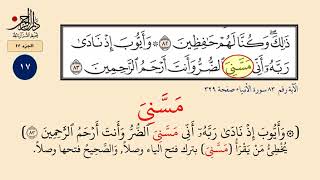 الجزء ١٧
١٧
ذَٰلِكَ وَكُنَّا لَهُمْ حَٰفِظِينَ ٨٢ ۞ وَأَيُّوبَ إِذْ نَادَىٰ
رَبَّهُۥٓ أَنِّي مَسَّنِيَ ٱلضُّرُّ وَأَنتَ أَرْحَمُ ٱلرَّٰحِمِينَ ٨٣
الآية رقم ٨٣ سورة الأنبياء صفحة ٣٢٩
مَسَّنِيَ
﴿۞ وَأَيُّوبَ إِذْ نَادَىٰ رَبَّهُۥٓ أَنِّي مَسَّنِيَ ٱلضُّرُّ وَأَنتَ أَرْحَمُ ٱلرَّٰحِمِينَ ٨٣﴾
يُخْطِئُ مَنْ يَقْرَأُ (مَسَّنِيَ) بِتَرْكِ فَتْحِ الْيَاءِ وَصْلاً، وَالصَّحِيحُ فَتْحُهَا وَصْلاً.